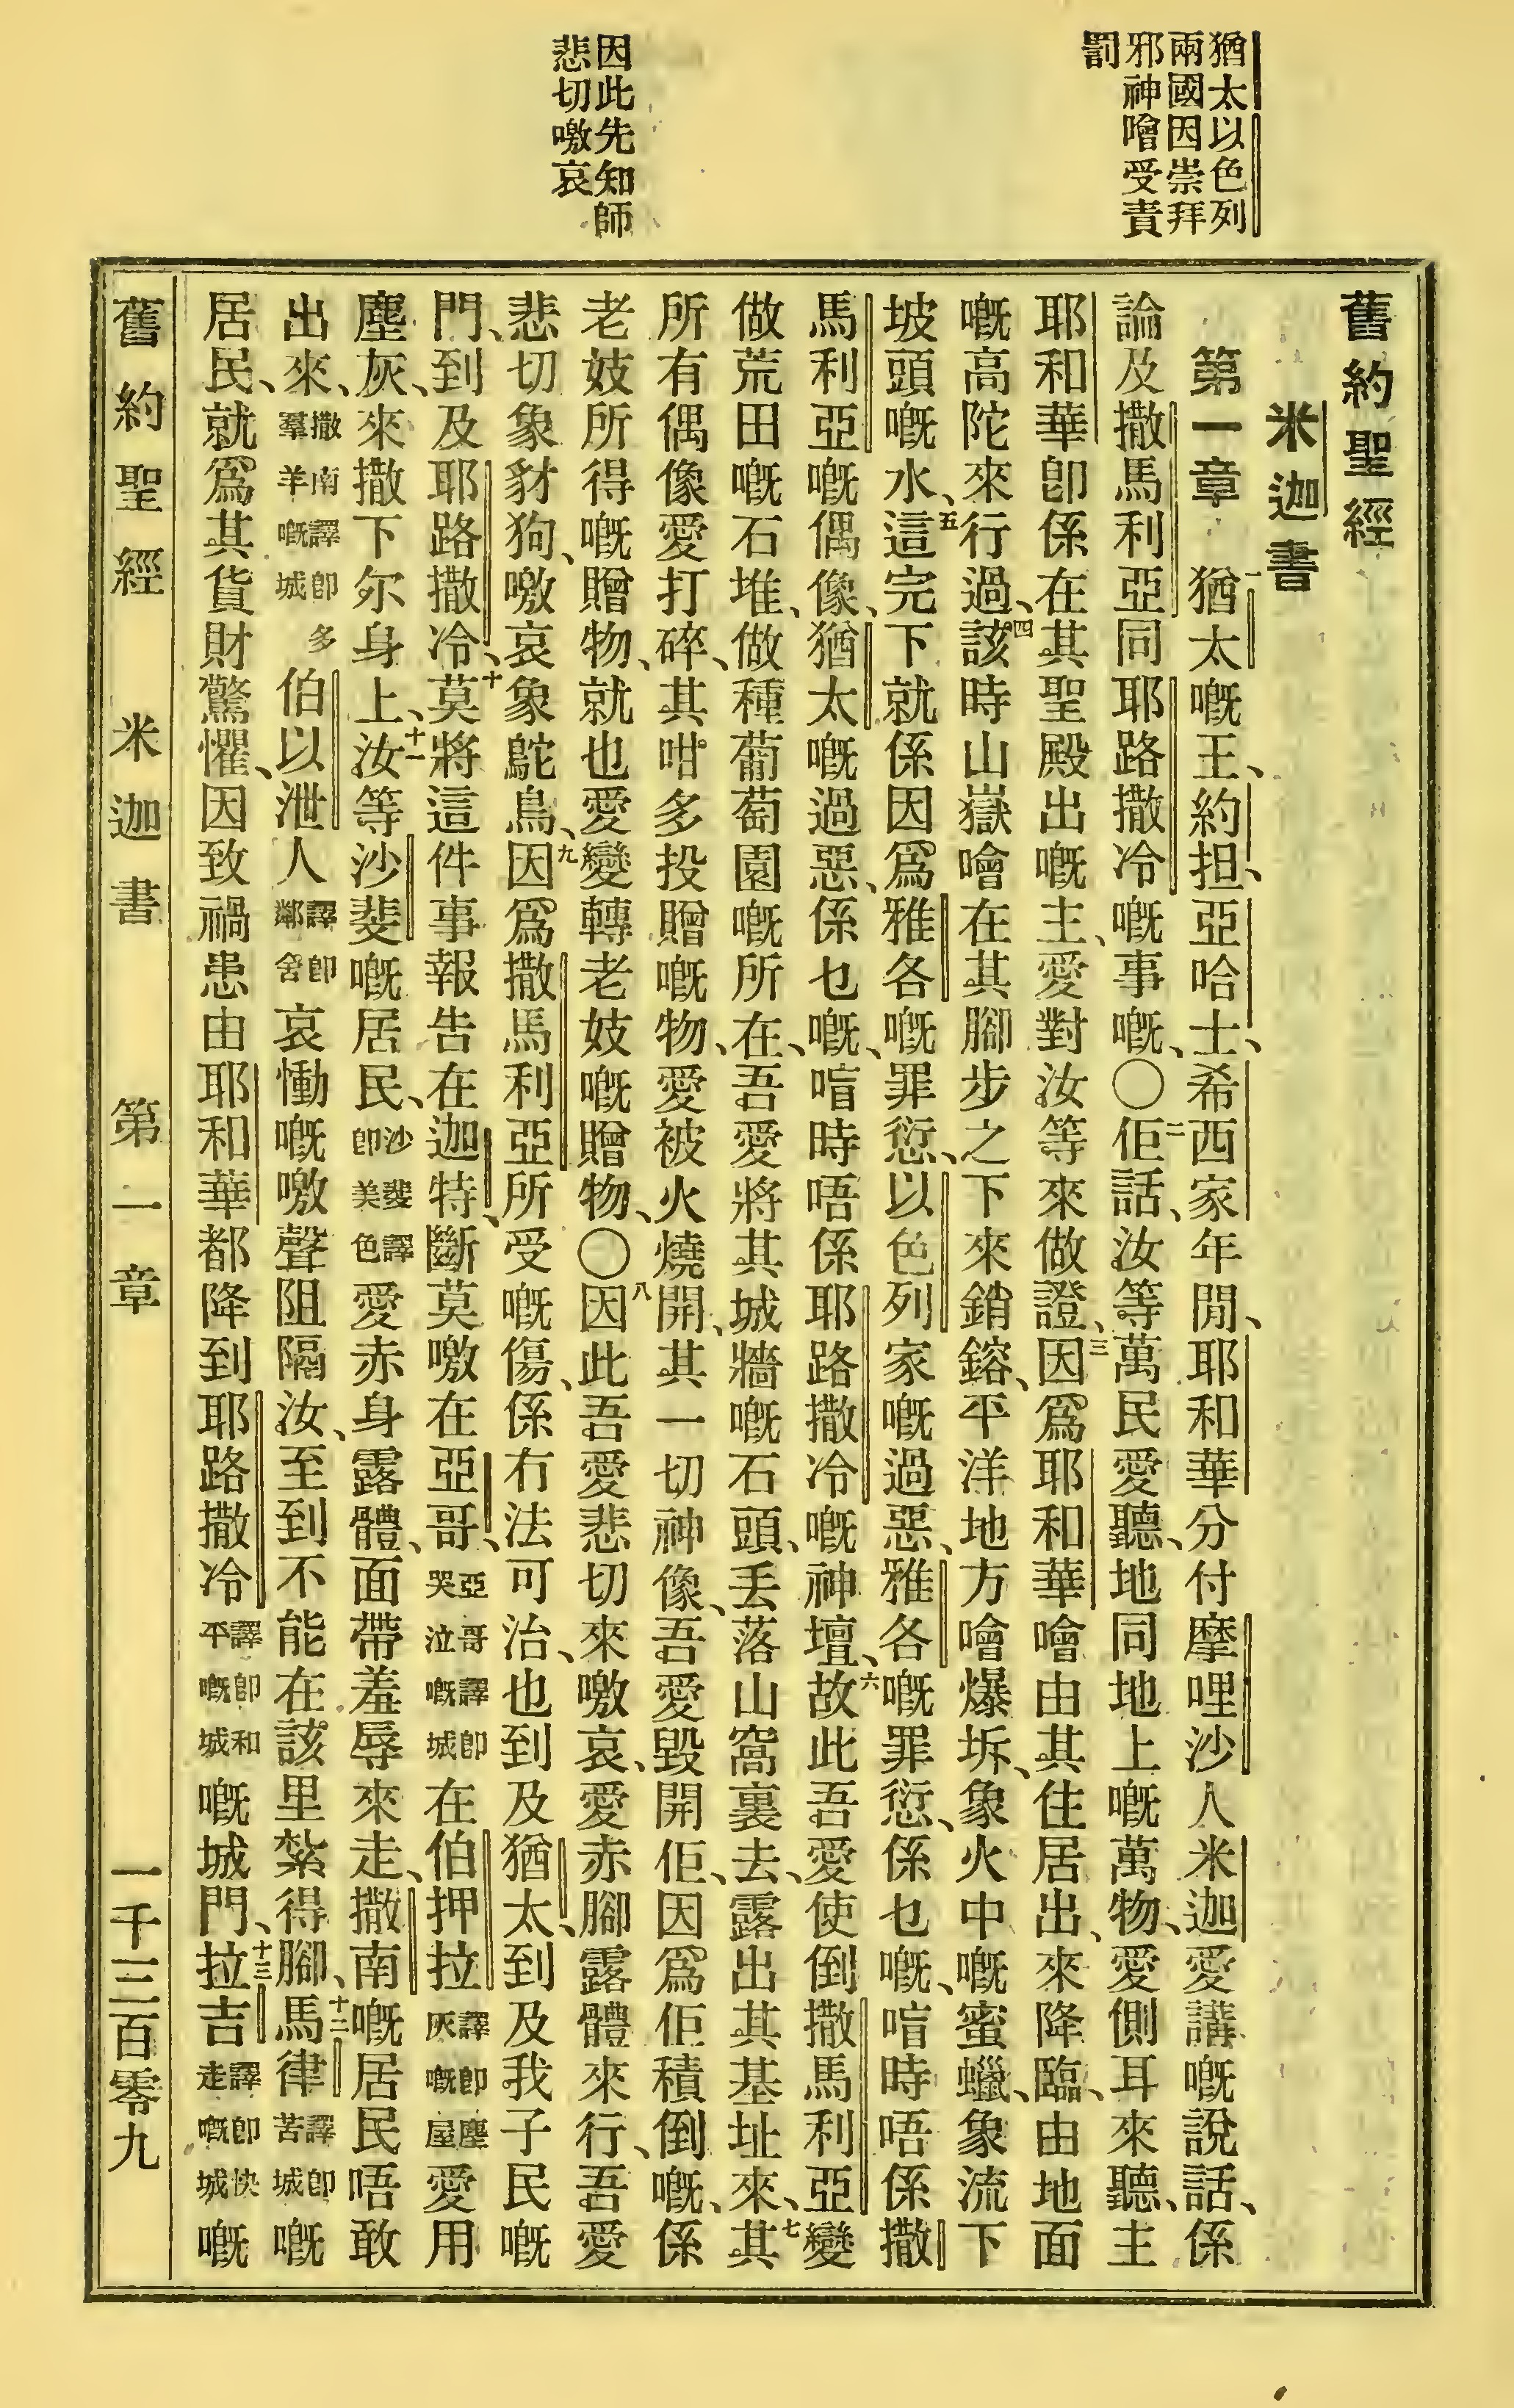 猶太以色列
兩國因崇拜
邪神噲受責
罰
因此先知師
悲切噭哀
舊約聖經
米迦書
第一章 一猶太嘅王、約担、亞哈士、希西家年閒、耶和華分付摩哩沙人米迦愛講嘅說話、係
論及撒馬利亞同耶路撒冷嘅事嘅、〇二佢話、汝等萬民愛聽、地同地上嘅萬物、愛側耳來聽、主
耶和華卽係在其聖殿出嘅主、愛對汝等來做證、三因爲耶和華噲由其住居出、來降臨、由地面
嘅高陀來行過、四該時山嶽噲在其腳步之下來銷鎔、平洋地方噲爆坼、象火中嘅蜜蠟、象流下
坡頭嘅水、五這完下就係因爲雅各嘅罪愆、以色列家嘅過惡、雅各嘅罪愆、係乜嘅、喑時唔係撒
馬利亞嘅偶像、猶太嘅過惡、係乜嘅、喑時唔係耶路撒冷嘅神壇、六故此吾愛使倒撒馬利亞變
做荒田嘅石堆、做種葡萄園嘅所在、吾愛將其城牆嘅石頭、丢落山窩裏去、露出其基址來、七其
所有偶像愛打碎、其咁多投贈嘅物、愛被火燒開、其一切神像、吾愛毀開佢、因爲佢積倒嘅、係
老妓所得嘅贈物、就也愛變轉老妓嘅贈物、〇八因此吾愛悲切來噭哀、愛赤腳露體來行、吾愛
悲切象豺狗、噭哀象鴕鳥、九因爲撒馬利亞所受嘅傷、係冇法可治、也到及猶太、到及我子民嘅
門、到及耶路撒冷、十莫將這件事報告在迦特、斷莫噭在亞哥、亞哥譯卽哭泣嘅城在伯押拉譯卽塵灰嘅屋愛用
塵灰、來撒下尔身上、十一汝等沙斐嘅居民、沙斐譯卽美色愛赤身露體、面帶羞辱來走、撒南嘅居民唔敢
出來、撒南譯卽多羣羊嘅城伯以泄人譯卽鄰舍哀慟嘅噭聲阻隔汝、至到不能在該里紮得腳、十二馬律譯卽苦城嘅
居民、就爲其貨財驚懼、因致禍患由耶和華都降到耶路撒冷譯卽和平嘅城嘅城門、十三拉吉譯卽快走嘅城嘅
舊約聖經 米迦書 第一章 一千三百零九